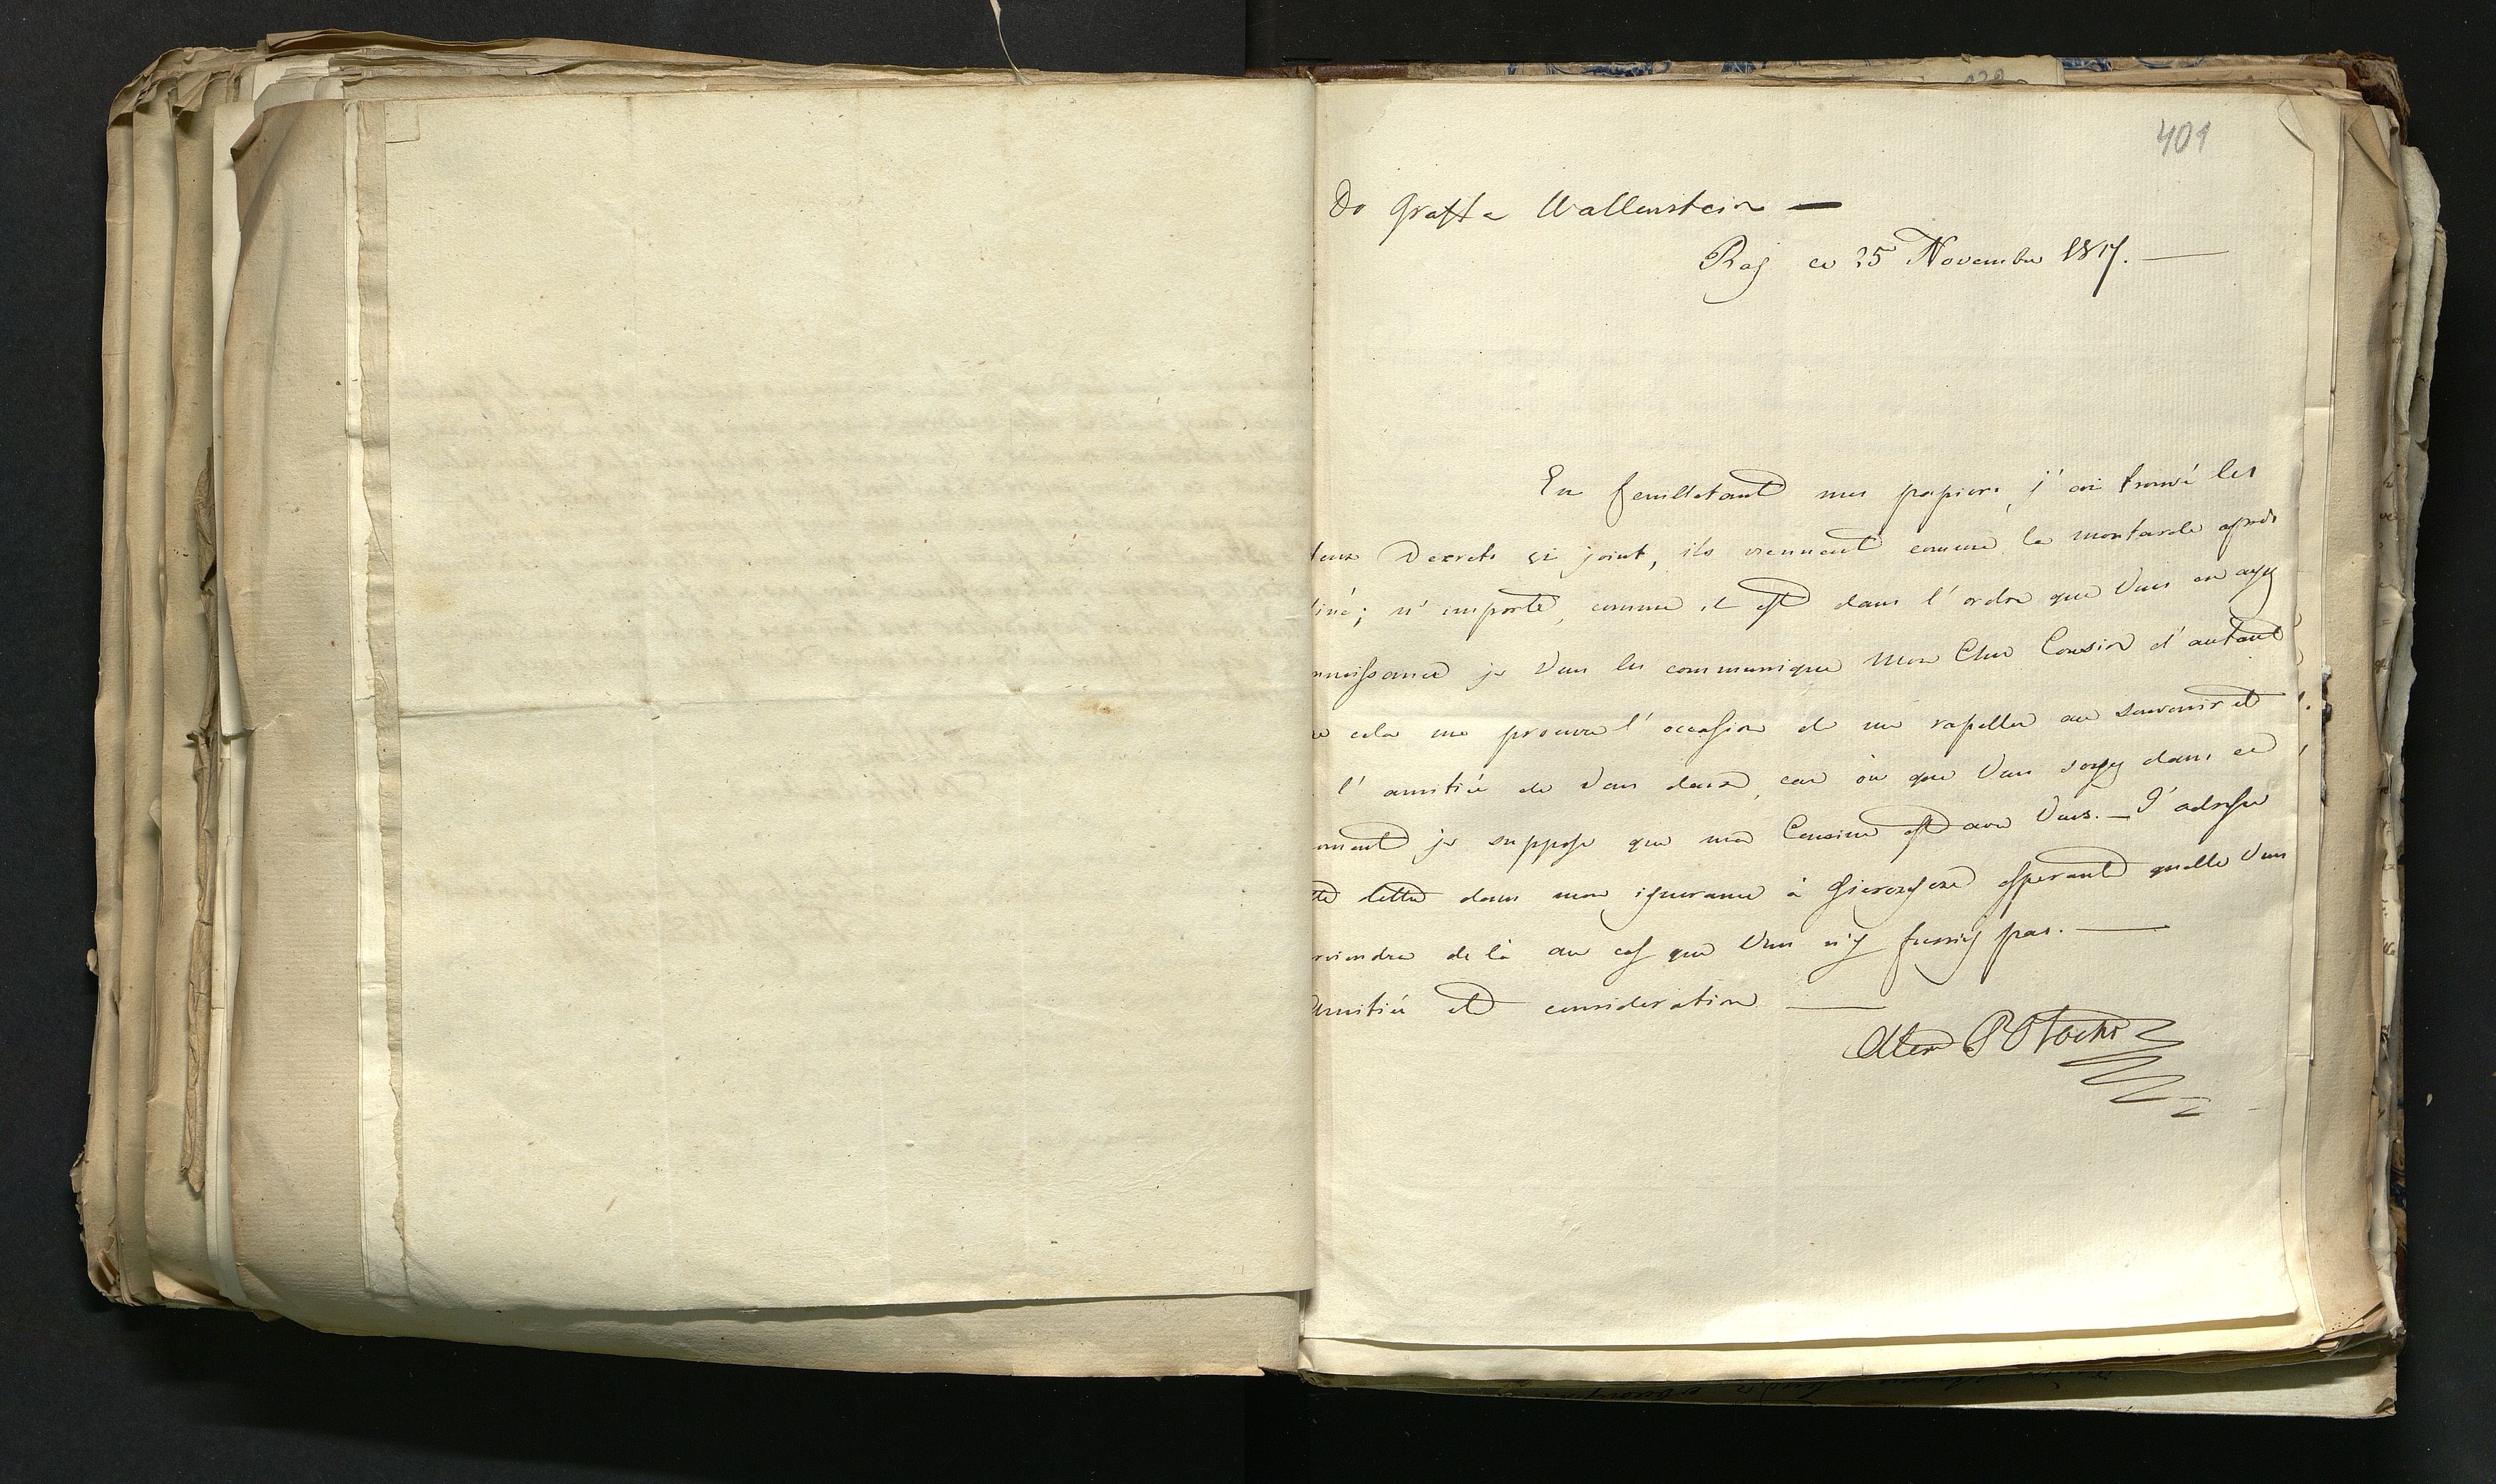 401
Do Graffa Wallenstein —
ce 25 Novembre 1817. —
En feuilletant mes papiers, j'ai trouvé les
deux Decrets ci joint, ils viennent comme la moutarde après
diné; n'importe, comme il est dans l'ordre que Vous en ayez
nnoissance je Vous les communique Mon Cher Cousin d'autant
e cela me procure l'occasion de me rapeller au souvenir et
l'amitié de Vous deux, car où que Vous soyez dans ce
oment je suppose que ma Cousine est avec Vous. — J'adresse
tte lettre dans mon ignorance à esperant quelle Vous
rviendra de là au cas que Vous n'y fussiez pas. —
Amitié et consideration —
Alex Potocki